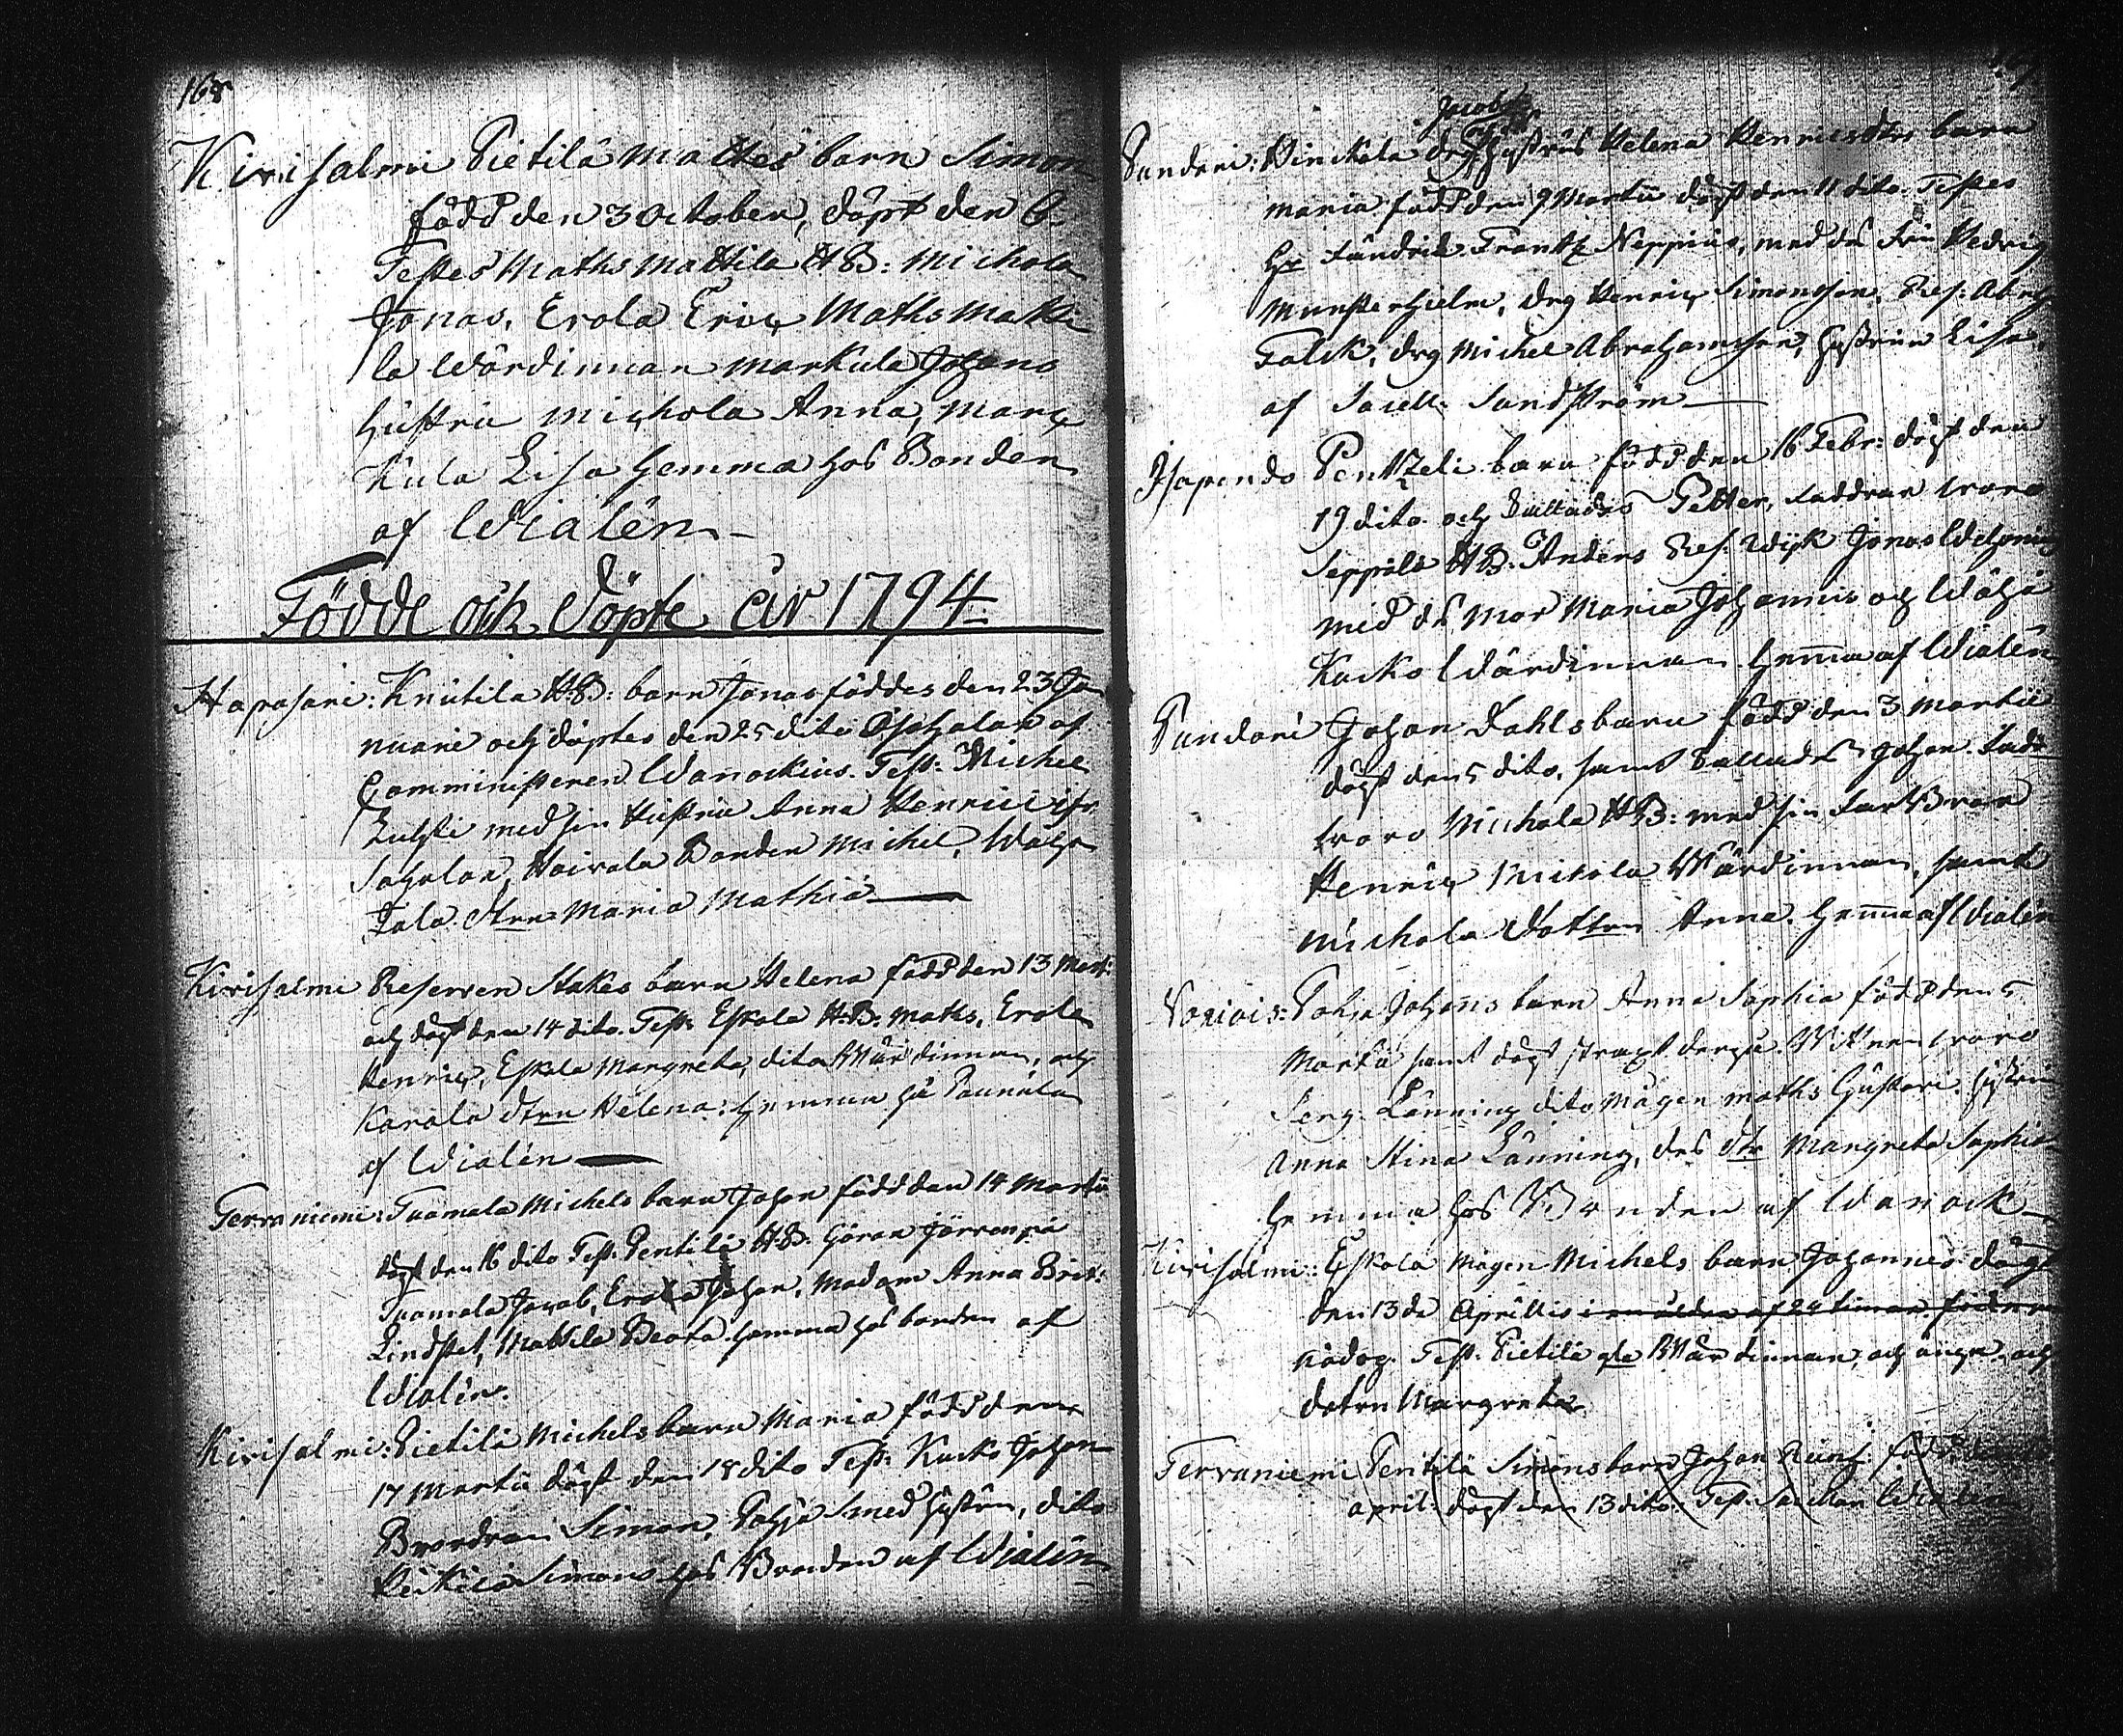 168
Kirisalmi Pietilä Mattes barn Simon
född den 3 October, döpt den 6.
Testes Maths Mattila HB: Michola
Jonas, Erola Eric Maths Matti
la Wärdinnan Markula Johans
hustru Michola Anna, Mar
kula Lisa hemma hos Bonden
af Wialén
Födde och Döpte år 1794
Haposari: Knutila HB: barn Jonas föddes den 23 Ja
nuarii och döptes den 25 dito af
Comministeren Wanockius. Test: Michel
med sin Hustru Anna Henrici
Bonden Michel,
tala dtrn Maria Mathiä
Kirisalmi Reserven Stakes barn Helena född den 13 Marti
och döpt den 14 dito. Test: Eskola HB: Maths, Erola
Henric, Eskola Margreta, dito Wärdinnan, och
Karola dtrn Helena: hemma på Paunula
af Wialén
Tervaniemi: Tuomala Michels barn Johan född den 14 Martii
döpt den 16 dito Test: Pentilä HB: Göran
Tuomala Jacob, Erola Johan, Madam Anna Brit:
Lindst, Mattila Beata hemma hos bonden af
Wialén.
Kirisalmi: Pietilä Michels barn Maria född den
17 Martii döpt den 18 dito Test: Kucko Johan
Simon, Pohja Smed hustrun, dito
Simons hos Bonden af Wialén
Jacob
Pundari: drg hustrus Helena Henricsdtr barn
Maria född den 9 Martii döpt den 11 dito. Testes
Hr Fändrik Frantz Neppius, med des Fru Hedvig
Munsterhjelm, drg Henric Simonsson, Res: Abrah
Falck, drg Michel Abrahamsson, hustrun Lisa,
af Sacell: Sundström
Pentzeli barn född den 16 Febr: döpt den
19 dito och kallades Petter, Faddrar woro
Seppälä HB: Anders Res: Wijk Jonas
med des Mor Maria Johannis och Wähä
Kucko Wärdinnan hemma af Wialén
Pundari Johan Dahls barn född den 3 Martii
döpt den 5 dito, samt kallades Johan. Fadd
woro Michola HB: med sin
Henric Michola Wärdinnan, samt
Michola dottren Anna. hemma af Wialén
Pohja Johans barn Anna Sophia född den 5
Martii samt döpt straxt derpå. Wittnen woro
Serg: Lönning dito Mågen Maths Gustavi. hustru
Anna Stina Lönning, des dtr Margreta Sophia
hemma hos Bonden af Wanock
Kirisalmi: Eskola Mågen Michels barn Johannes döpt
den 13 de Aprillis i en ålder af 24 timar
nödop. Test: Pietilä gla Wärdinnan, och unga och
dotren Margreta
Tervaniemi Pentilä Simons barn Johan född
april: döpt den 13 dito. Test: